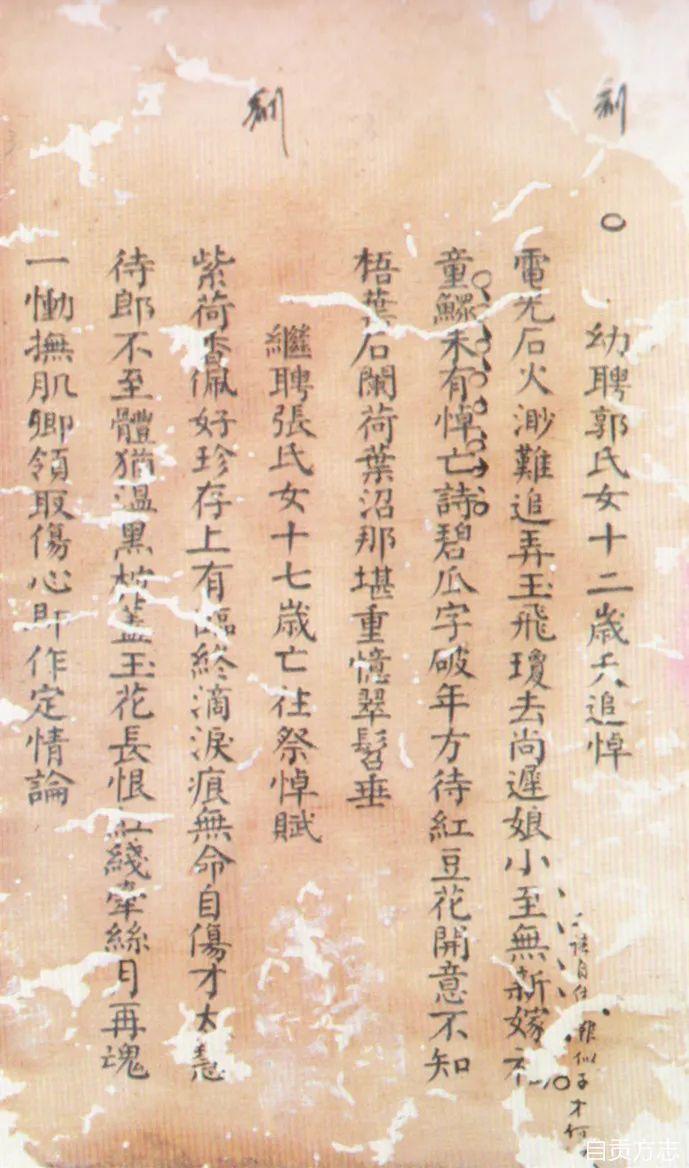 刻
幼聘郭氏女十二歲夭追悼
電光石火渺難追弄玉飛瓊去尚遲娘小至無新嫁
自 似子才何
童鰥未有悼亡詩碧瓜字破年方待紅豆花開意不知
梧葉石闌荷葉沼那堪重憶翠髫垂
刻
繼聘張氏女十七歲亡往祭悼賦
紫荷香佩好珍存上有臨終滴淚痕無命自傷才太慧
待郎不至體猶溫黑 蓋玉花長恨紅綫牽絲月再魂
一慟撫肌卿領取傷心即作定情論
自贡方志